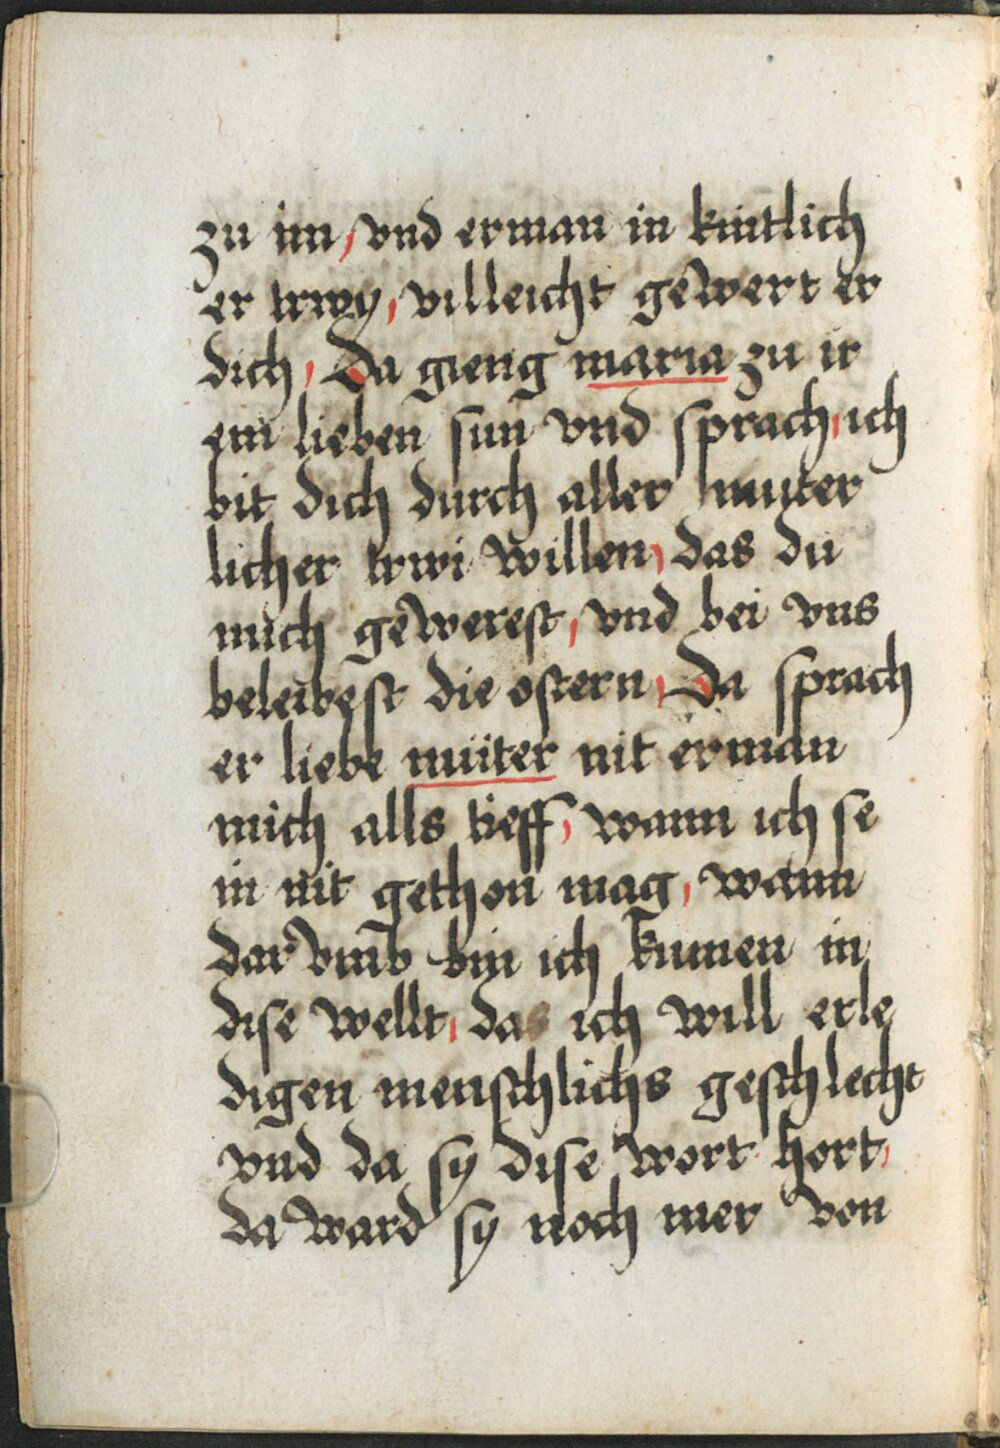 zu im, vnd erman in kintlich
er trwy, villeicht gewert er
dich, Da gieng maria zu ir
em lieben sun vnd sprach, ich
bit dich durch aller muter
licher trwi willen, das du
mich gewerest, vnd bei vns
beleibest die ostern, Da sprach
er liebe müter nit erman
mich alls tieff, wann ich se
in nit gethon mag, wann
dar vmb bin ich kumen in
dise wellt, das ich will erle
digen menschlichs geschlecht
vnd da sy dise wort hort,
da ward sy noch mer von